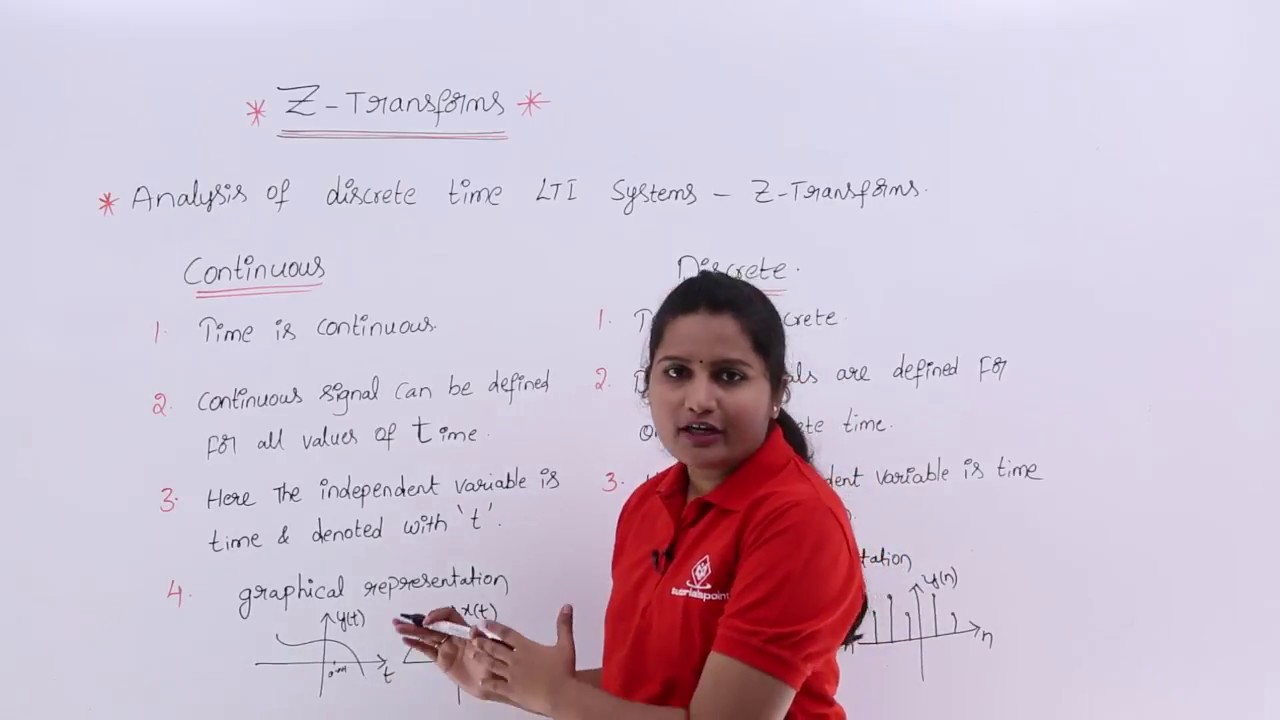 * Z-Transforms *
* Analysis of discrete time LTI Systems - Z-Transforms.
Continuous
1. Time is continuous.
2. Continuous signal can be defined
for all values of time.
3. Here The independent variable is
time & denoted with 't'.
4. graphical representation
y(t)
t
x(t)
Discrete.
1.
2. are defined for
time.
3. variable is time
y(n)
n
tutorialspoint